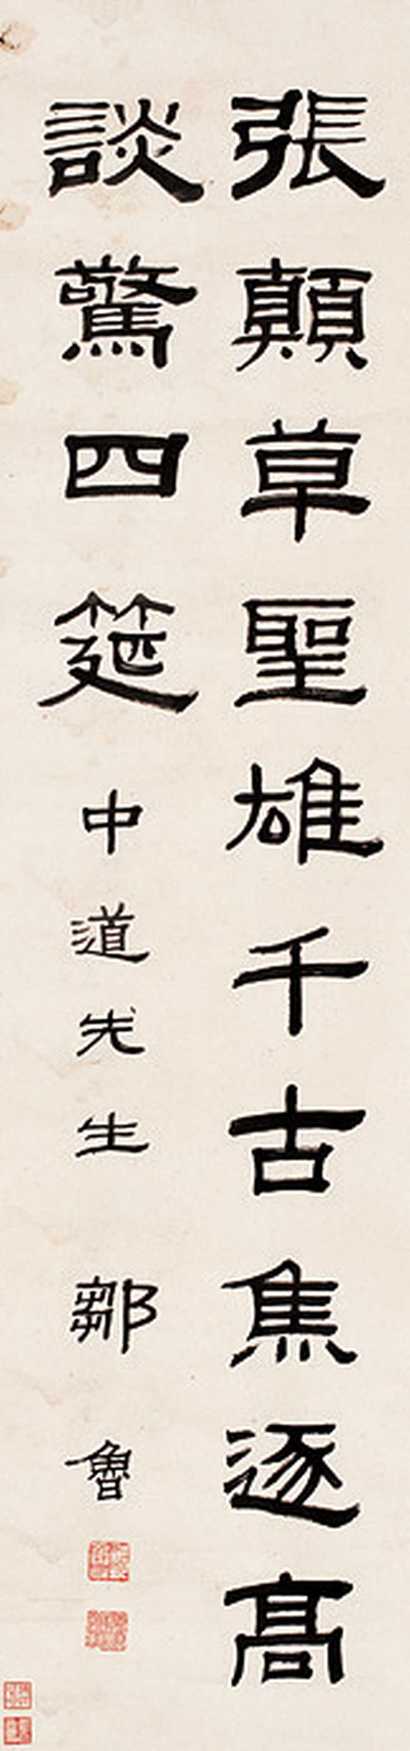 張顛草聖雄千古焦逐高
談驚四筵
中道先生 鄒魯